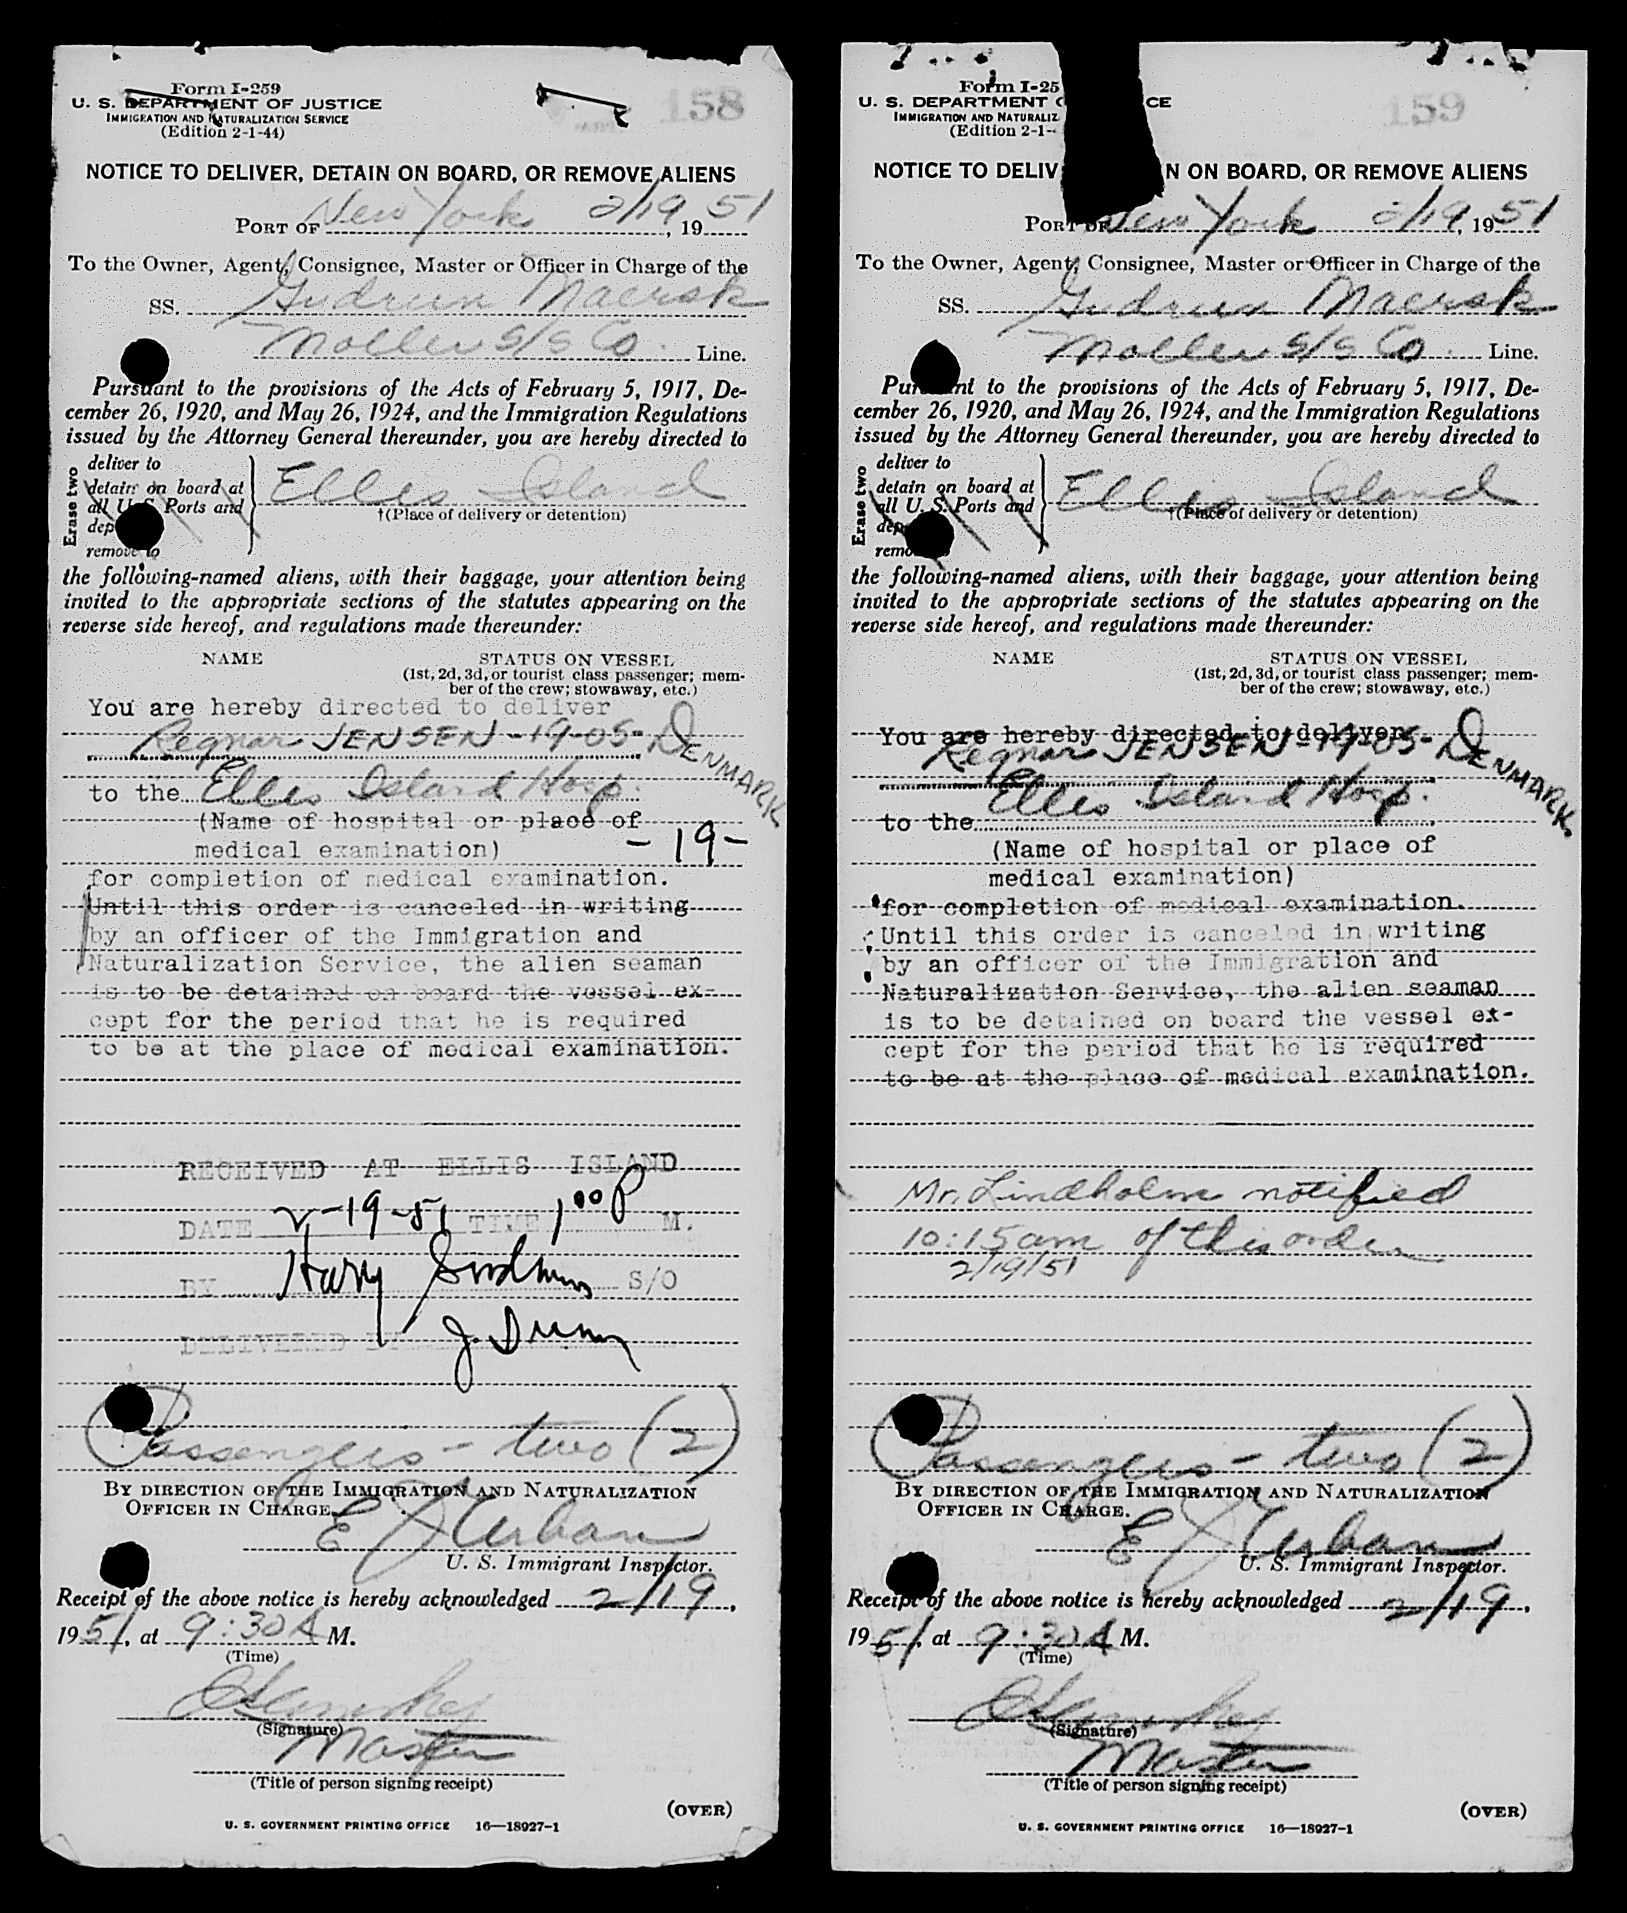 Form I-259
U. S. DEPARTMENT OF JUSTICE
IMMIGRATION AND NATURALIZATION SERVICE
(Edition 2-1-44)
158
NOTICE TO DELIVER, DETAIN ON BOARD, OR REMOVE ALIENS
PORT OF New York 2/19, 1951
To the Owner, Agent, Consignee, Master or Officer in Charge of the
SS. Gudrun Maersk
Moller S/S Co. Line.
Pursuant to the provisions of the Acts of February 5, 1917, De-
cember 26, 1920, and May 26, 1924, and the Immigration Regulations
issued by the Attorney General thereunder, you are hereby directed to
Erase two
deliver to
detain on board at
all U. S. Ports and
dep
remove to
Ellis Island
†(Place of delivery or detention)
the following-named aliens, with their baggage, your attention being
invited to the appropriate sections of the statutes appearing on the
reverse side hereof, and regulations made thereunder:
NAME STATUS ON VESSEL
(1st, 2d, 3d, or tourist class passenger; mem-
ber of the crew; stowaway, etc.)
You are hereby directed to deliver
Regnar JENSEN -19-05- DENMARK
to the Ellis Island Hosp.
(Name of hospital or place of
medical examination) -19-
for completion of medical examination.
Until this order is canceled in writing
by an officer of the Immigration and
Naturalization Service, the alien seaman
is to be detained on board the vessel ex-
cept for the period that he is required
to be at the place of medical examination.
RECEIVED AT ELLIS ISLAND
DATE 2-19-51 TIME 1 00 P M.
BY Harry S/O
DELIVERED BY J.
Passengers - two (2)
BY DIRECTION OF THE IMMIGRATION AND NATURALIZATION
OFFICER IN CHARGE.
E J Urban
U. S. Immigrant Inspector.
Receipt of the above notice is hereby acknowledged 2/19,
1951, at 9:30 A M.
(Time)
(Signature)
Master
(Title of person signing receipt)
(OVER)
U. S. GOVERNMENT PRINTING OFFICE 16—18927-1
Form I-25
U. S. DEPARTMENT CE
IMMIGRATION AND NATURALIZ
(Edition 2-1-
159
NOTICE TO DELIV N ON BOARD, OR REMOVE ALIENS
PORT OF New York 2/19, 1951
To the Owner, Agent, Consignee, Master or Officer in Charge of the
SS. Gudrun Maersk
Moller S/S Co. Line.
Pursuant to the provisions of the Acts of February 5, 1917, De-
cember 26, 1920, and May 26, 1924, and the Immigration Regulations
issued by the Attorney General thereunder, you are hereby directed to
Erase two
deliver to
detain on board at
all U. S. Ports and
dep
remo
Ellis Island
†(Place of delivery or detention)
the following-named aliens, with their baggage, your attention being
invited to the appropriate sections of the statutes appearing on the
reverse side hereof, and regulations made thereunder:
NAME STATUS ON VESSEL
(1st, 2d, 3d, or tourist class passenger; mem-
ber of the crew; stowaway, etc.)
You are hereby directed to deliver
Regnar JENSEN -19-05- DENMARK.
to the Ellis Island Hosp.
(Name of hospital or place of
medical examination)
for completion of medical examination.
Until this order is canceled in writing
by an officer of the Immigration and
Naturalization Service, the alien seaman
is to be detained on board the vessel ex-
cept for the period that he is required
to be at the place of medical examination.
Mr. Lindholm notified
10:15 am of this order
2/19/51
Passengers - two (2)
BY DIRECTION OF THE IMMIGRATION AND NATURALIZATION
OFFICER IN CHARGE.
E J Urban
U. S. Immigrant Inspector.
Receipt of the above notice is hereby acknowledged 2/19,
1951, at 9:30 A M.
(Time)
(Signature)
Master
(Title of person signing receipt)
(OVER)
U. S. GOVERNMENT PRINTING OFFICE 16—18927-1